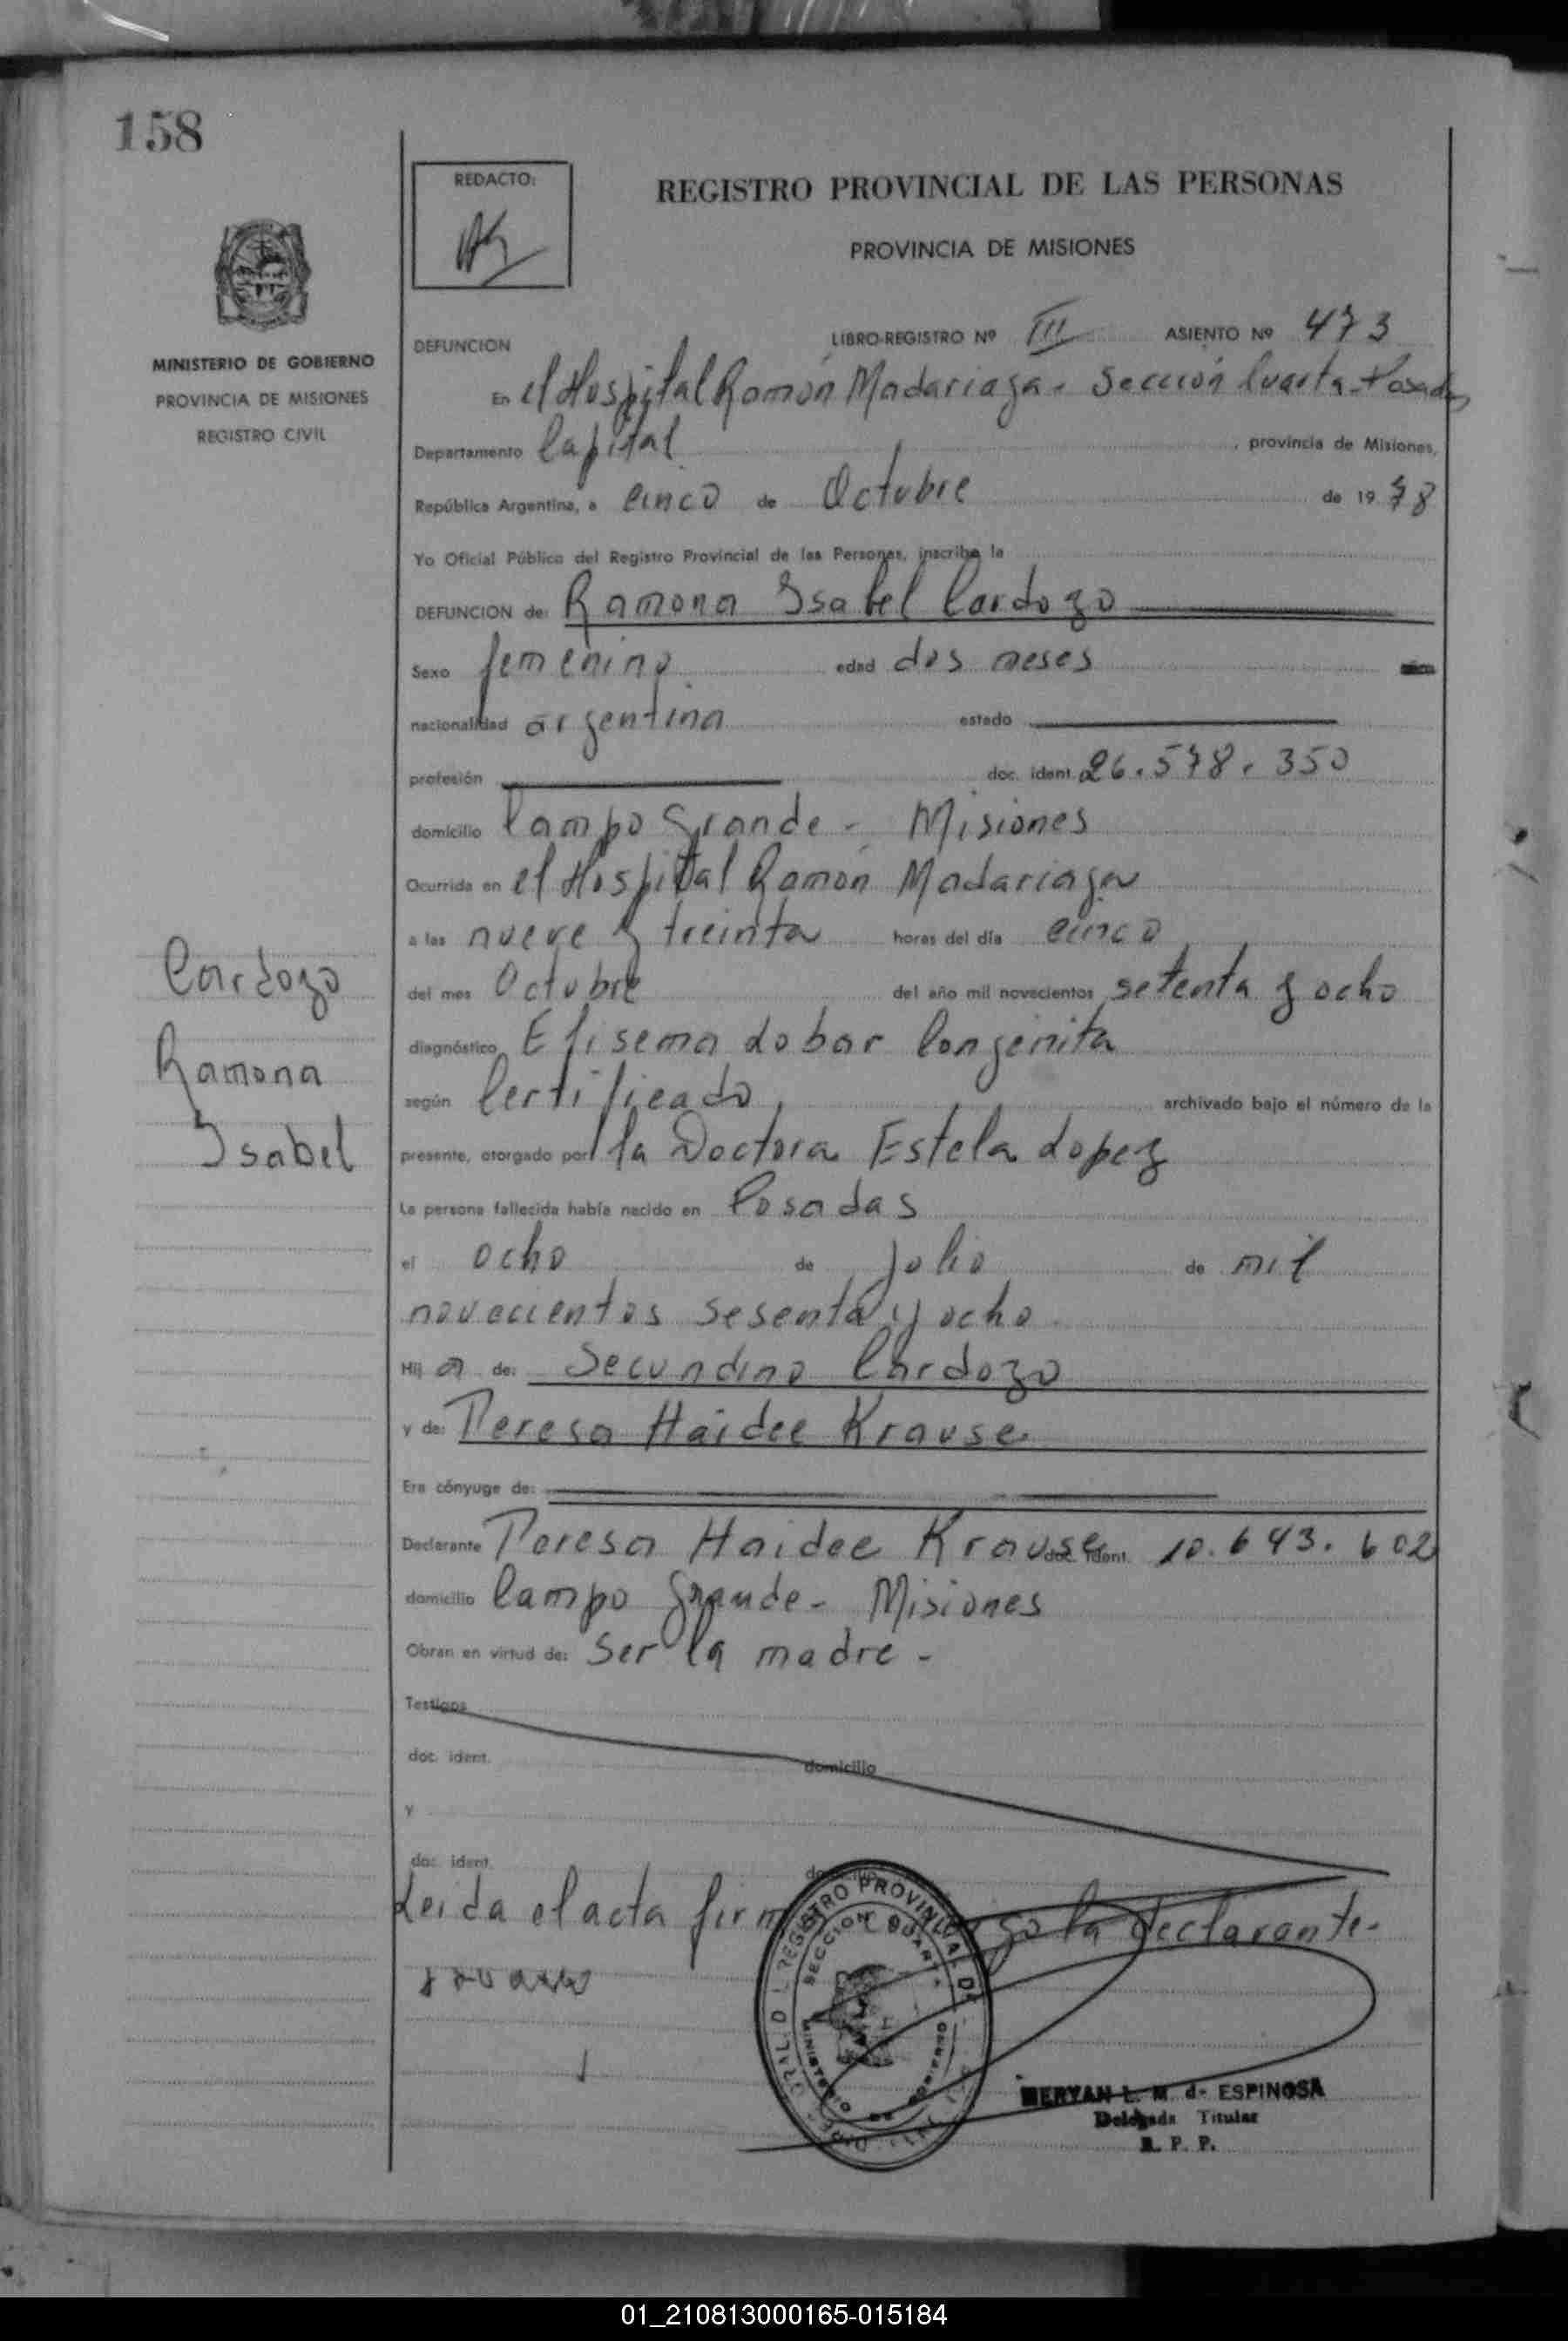 158
REDACTO:
REGISTRO PROVINCIAL DE LAS PERSONAS
PROVINCIA DE MISIONES
MINISTERIO DE GOBIERNO
PROVINCIA DE MISIONES
REGISTRO CIVIL
DEFUNCION LIBRO-REGISTRO Nº III ASIENTO Nº 473
En el Hospital Ramón Madariaga - Sección Cuarta - Posadas
Departamento Capital, provincia de Misiones,
República Argentina, a cinco de Octubre de 1978
Yo Oficial Público del Registro Provincial de las Personas, inscribo la
DEFUNCION de: Ramona Isabel Cardozo
Sexo femenino edad dos meses
nacionalidad argentina estado
profesión doc. ident. 26.578.350
domicilio Campo Grande - Misiones
Ocurrida en el Hospital Ramón Madariaga
a las nueve y treinta horas del día cinco
del mes Octubre del año mil novecientos setenta y ocho
diagnóstico Efisema Lobar Congenita
según Certificado, archivado bajo el número de la
presente, otorgado por la Doctora Estela Lopez
La persona fallecida había nacido en Posadas
el ocho de julio de mil
novecientos sesenta y ocho
Hij a de: Secundino Cardozo
y de: Teresa Haidee Krause
Era cónyuge de:
Declarante Teresa Haidee Krause doc. ident. 10.643.602
domicilio Campo Grande - Misiones
Obran en virtud de: Ser la madre -
Testigos
doc. ident. domicilio
y
doc. ident. domicilio
Leida el acta firma la declarante.
Cardozo
Ramona
Isabel
REGISTRO PROVINCIAL DE
SECCION CUARTA
MINISTERIO DE GOBIERNO
MERYAN L. M. de ESPINOSA
Delegada Titular
R. P. P.
01_210813000165-015184